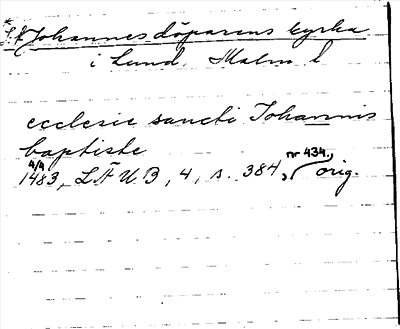 S:t Johannes döparens kyrka
i Lund. Malm l
ecclesie sancti Johannis
baptiste
4/4 1483, LÄUB, 4, s. 384, nr 434, orig.